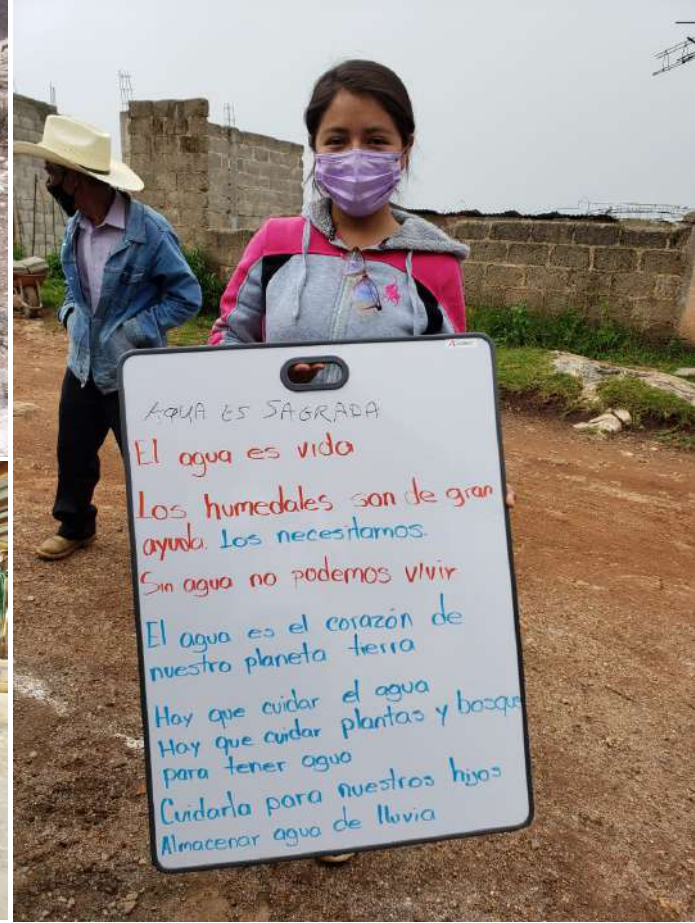 AGUA ES SAGRADA
El agua es vida
Los humedales son de gran
ayuda. Los necesitamos.
Sin agua no podemos vivir
El agua es el corazón de
nuestro planeta tierra
Hay que cuidar el agua
Hay que cuidar plantas y bosque
para tener agua
Cuidarla para nuestros hijos
Almacenar agua de lluvia